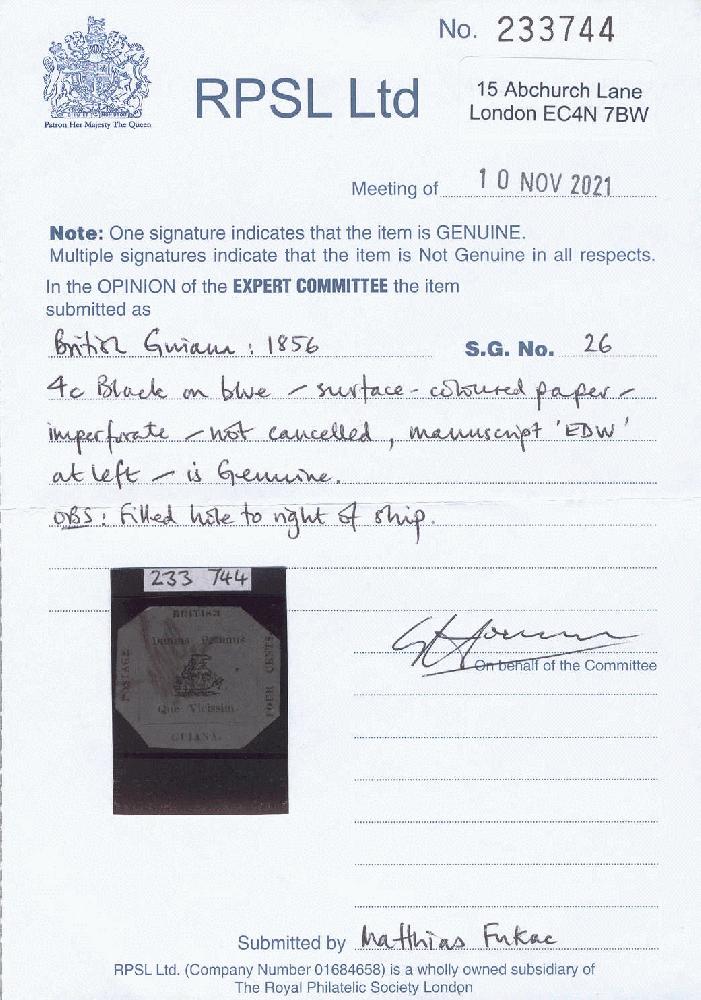 No. 233744
Patron Her Majesty The Queen
RPSL Ltd
15 Abchurch Lane
London EC4N 7BW
Meeting of 10 NOV 2021
Note: One signature indicates that the item is GENUINE.
Multiple signatures indicate that the item is Not Genuine in all respects.
In the OPINION of the EXPERT COMMITTEE the item
submitted as
British Guiana : 1856 S.G. No. 26
4c Black on blue – surface-coloured paper –
imperforate – not cancelled, manuscript 'EDW'
at left – is Genuine.
OBS: Filled hole to right of ship.
233 744
BRITISH
Damus Petimus
POSTAGE
FOUR CENTS
Que Vicissim.
GUIANA.
On behalf of the Committee
Submitted by Matthias Fukac
RPSL Ltd. (Company Number 01684658) is a wholly owned subsidiary of
The Royal Philatelic Society London